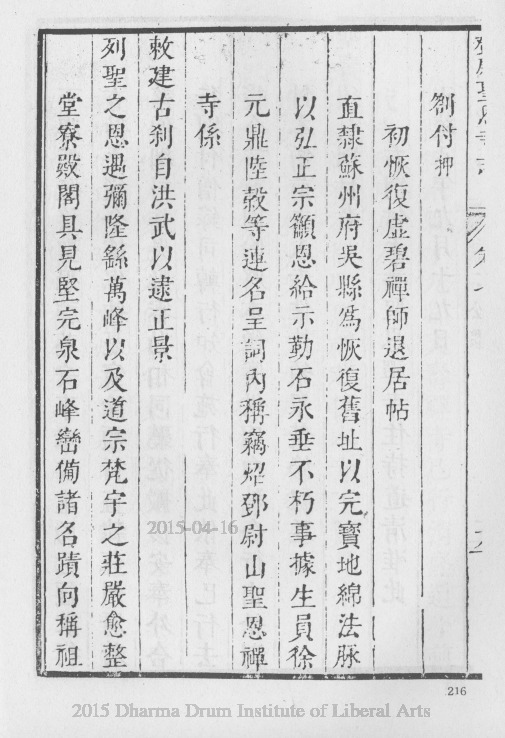 劄付押
初恢復虛碧禪師退居帖
直隸蘇州府吳縣為恢復舊址以完寶地綿法脉
以弘正宗籲恩給示勒石永垂不朽事據生員徐
元鼎陸㲄等連名呈詞內稱竊炤鄧尉山聖恩禪
寺係
敕建古剎自洪武以逮正景
列聖之恩遇彌隆繇萬峰以及道宗梵宇之莊嚴愈整
堂寮殿閣具見堅完泉石峰巒備諸名蹟向稱祖
2015-04-16
216
2015 Dharma Drum Institute of Liberal Arts